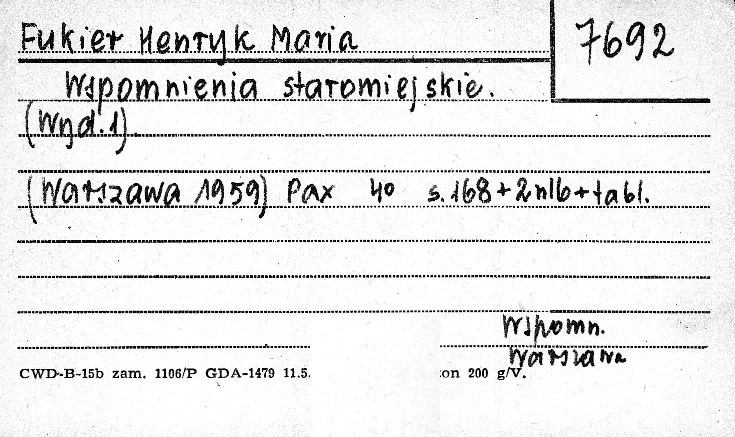 Fukier Henryk Maria
7692
Wspomnienia staromiejskie.
(Wyd. 1)
(Warszawa 1959) Pax 4o s. 168 + 2 nlb + tabl.
Wspomn.
Warszawa
CWD-B-15b zam. 1106/P GDA-1479 11.5. on 200 g/V.